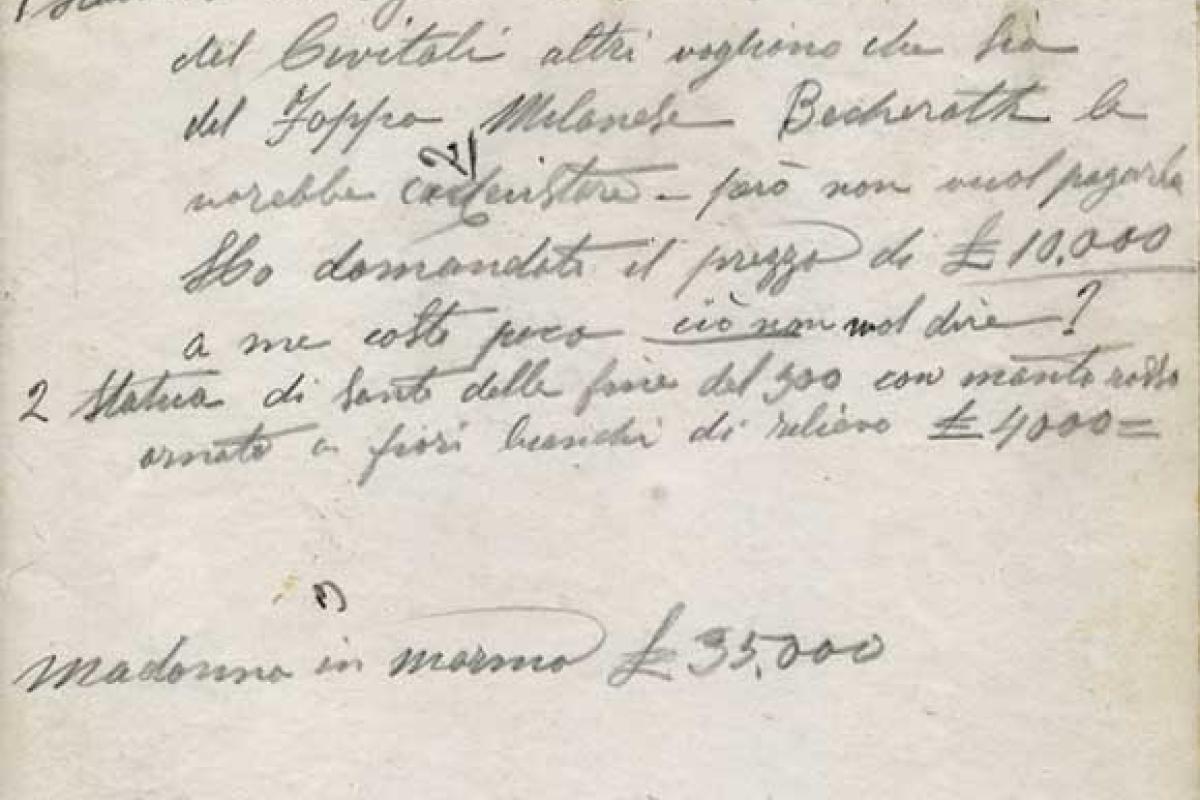 del Civitali altri vogliono che sia
del Foppa Milanese Becherath la
vorebbe acquistare - però non vuol pagarla
Ho domandato il prezzo di £ 10.000
a me costa poco ciò non vuol dire?
2 Statua di Santo della fine del 300 con manto rosso
ornato a fiori bianchi di relievo £ 4000=
Madonna in marmo £ 35.000